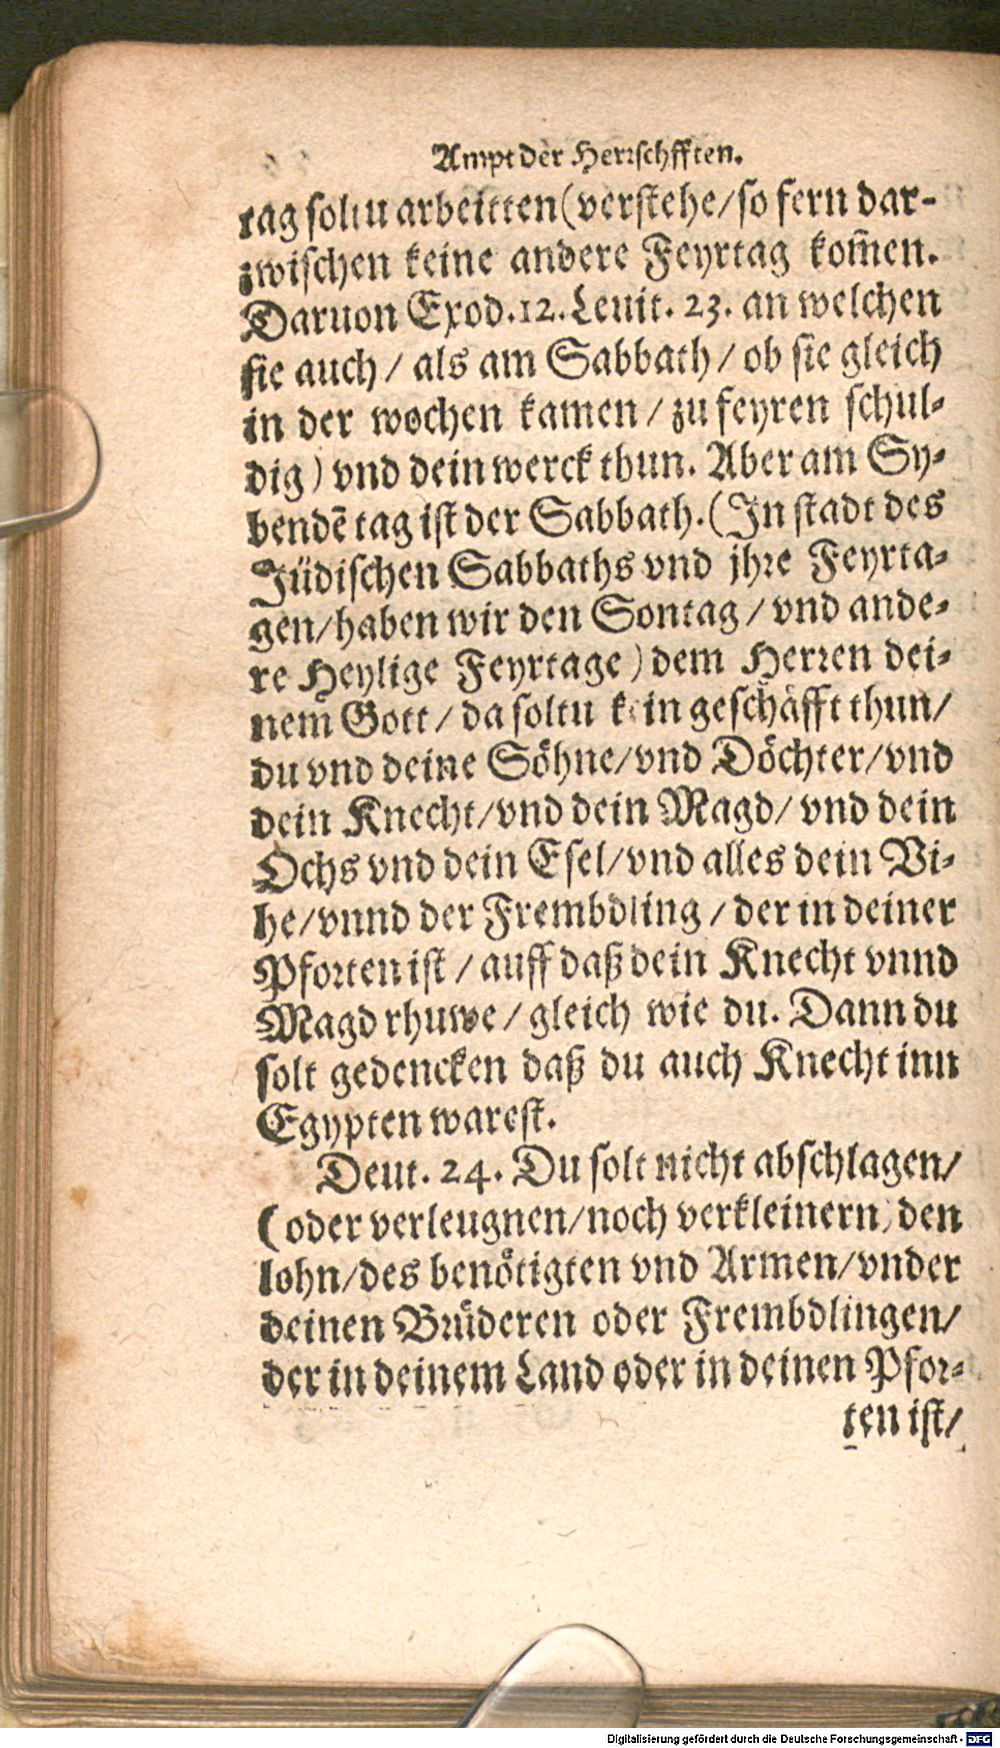 Ampt der Herrschfften.
tag soltu arbeitten (verstehe/so fern dar-
zwischen keine andere Feyrtag kom̃en.
Daruon Exod.12. Leuit. 23. an welchen
sie auch / als am Sabbath / ob sie gleich
in der wochen kamen / zu feyren schul-
dig) vnd dein werck thun. Aber am Sy-
bendẽ tag ist der Sabbath. (In stadt des
Jüdischen Sabbaths vnd jhre Feyrta-
gen/haben wir den Sontag / vnd ande-
re Heylige Feyrtage) dem Herren dei-
nem Gott / da soltu kein geschäfft thun/
du vnd deine Söhne/vnd Döchter/vnd
dein Knecht/vnd dein Magd/ vnd dein
Ochs vnd dein Esel/vnd alles dein Vi-
he/vnnd der Frembdling / der in deiner
Pforten ist / auff daß dein Knecht vnnd
Magd rhuwe / gleich wie du. Dann du
solt gedencken daß du auch Knecht inn
Egypten warest.
Deut. 24. Du solt nicht abschlagen/
(oder verleugnen/noch verkleinern) den
lohn/des benötigten vnd Armen/vnder
deinen Brüderen oder Frembdlingen/
der in deinem Land oder in deinen Pfor-
ten ist/
Digitalisierung gefördert durch die Deutsche Forschungsgemeinschaft - DFG